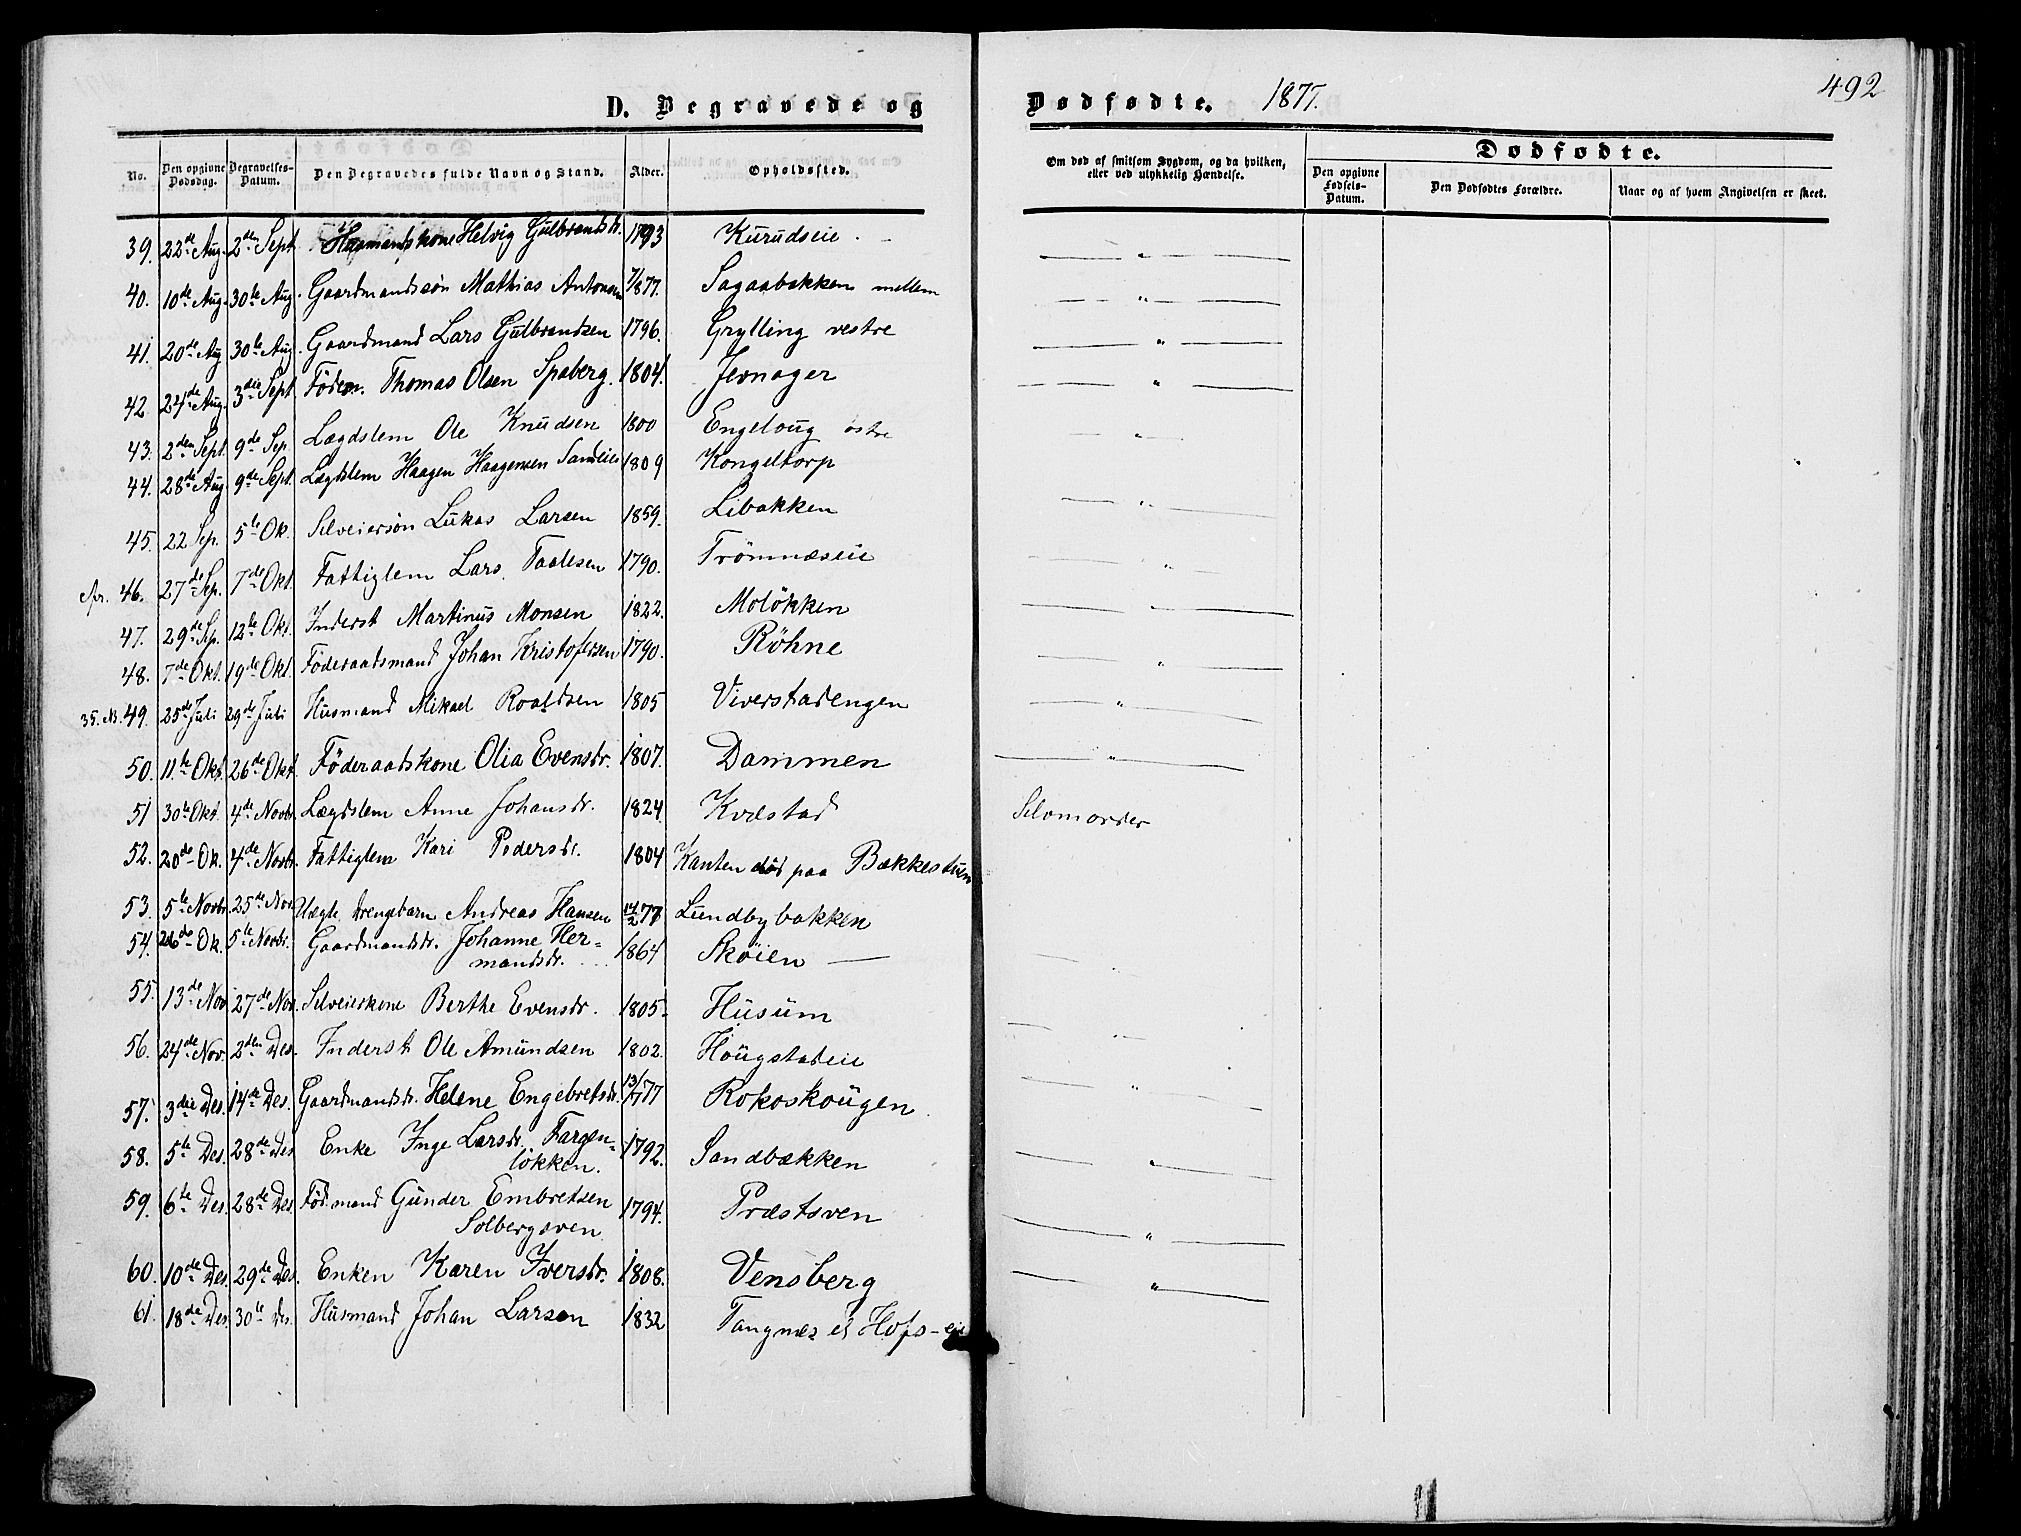 D. Begravede og Dødfødte. 1877. 492
No. Den opgivne Dødsdag. Begravelses-Datum. Den Begravedes fulde Navn og Stand. Alder. Opholdssted. Om død af smitsom Sygdom, og da hvilken, eller ved ulykkelig Hændelse. Dødfødte. Den opgivne Fødsels-Datum. Den Dødfødtes Forældre. Naar og af hvem Angivelsen er skeet.
39. 22de Aug. 2den Sept. Helvig Gulbrandsdr. 1793 Kurudseie — " —
40. 10de Aug. 30te Aug. Gaardmandssøn Mathias Antonsen 7/8 77. Sagaabakken mellem — " —
41. 20de Aug 30te Aug. Gaardmand Lars Gulbrandsen 1796. Grylling vestre — " —
42. 24de Aug. 3die Sept. Føderm. Thomas Olsen Spaberg. 1804. Jevnager — " —
43. 2den Sept. 9de Sep. Lægdslem Ole Knudsen 1800 Engeloug østre — " —
44. 28de Aug 9de Sept. Lægdslem Haagen Haagensen 1809 Kongeltorp
45. 22 Sep. 5te Ok. Selveiersøn Lukas Larsen 1859. Libakken — " —
46. 27de Sep. 7de Okt. Fattiglem Lars Taalesen 1790. Trömnæseie — " —
47. 29de Sp. 12te Okt. Inderst Martinus Monsen 1822. Moløkken — " —
48. 7de Okt. 19de Okt. Föderaadsmand Johan Kristofersen 1790. Röhne — " —
35. N. 49. 25de Juli 29de Juli Husmand Mikael Roaldsen 1805 Viverstadengen — " —
50. 11te Okt. 26de Okt. Föderaadskone Olia Evensdr. 1807. Dammen — " —
51 30te Okt. 4de Novbr. Lægdslem Anne Johansdr. 1824. Kvæstad Selvmorder
52. 20de Ok. 4de Novbr. Fattiglem Kari Pedersdr. 1804 Kanten død paa Bækkestuen
53. 5te Novbr. 25de Nov. Uægte Drengebarn Andreas Hansen 14/2 77 Lundbybakken
54. 26de Ok. 5te Novbr. Gaardmandsdr. Johanne Her=
mandsdr. 1864 Skøien —
55. 13de Nov. 27de Nov. Selveierkone Berthe Evensdr. 1805 Husum
56. 24de Nov. 2den Des. Inderst Ole Amundsen 1802. Hougstadeie
57. 3die Des. 14de Des. Gaardmandsdr. Helene Engebretsdr. 13/7 77 Rokoskougen — " —
58. 5te Des. 28de Des Enke Inge Larsdr. Fargen=
løkken. 1792. Sandbækken — " —
59. 6te Des. 28de Des. Föd.mand Gunder Embretsen
Solbergsven 1794. Præstsven — " —
60. 10de Des. 29de Des. Enken Karen Iversdr. 1808. Vensberg — " —
61. 18de Des. 30te Des. Husmand Johan Larsen 1832 Tangnes ei Hofs-eie